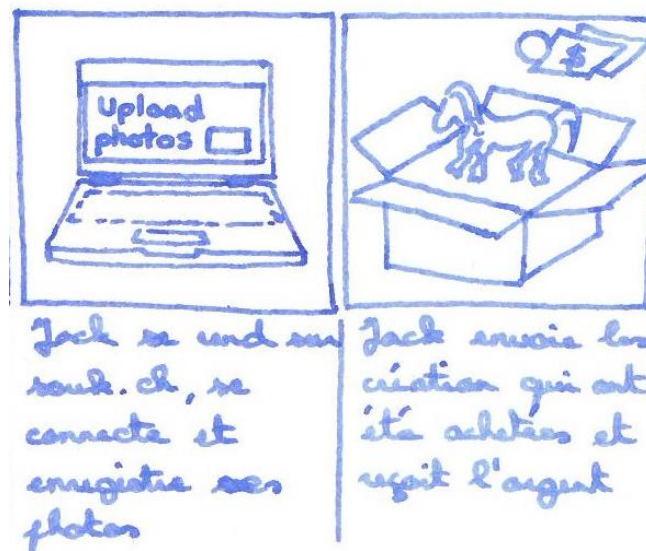 Upload
photos
$
Jack se rend sur
souk.ch, se
connecte et
enregistre ses
photos
Jack envoie les
création qui ont
été achetées et
reçoit l'argent